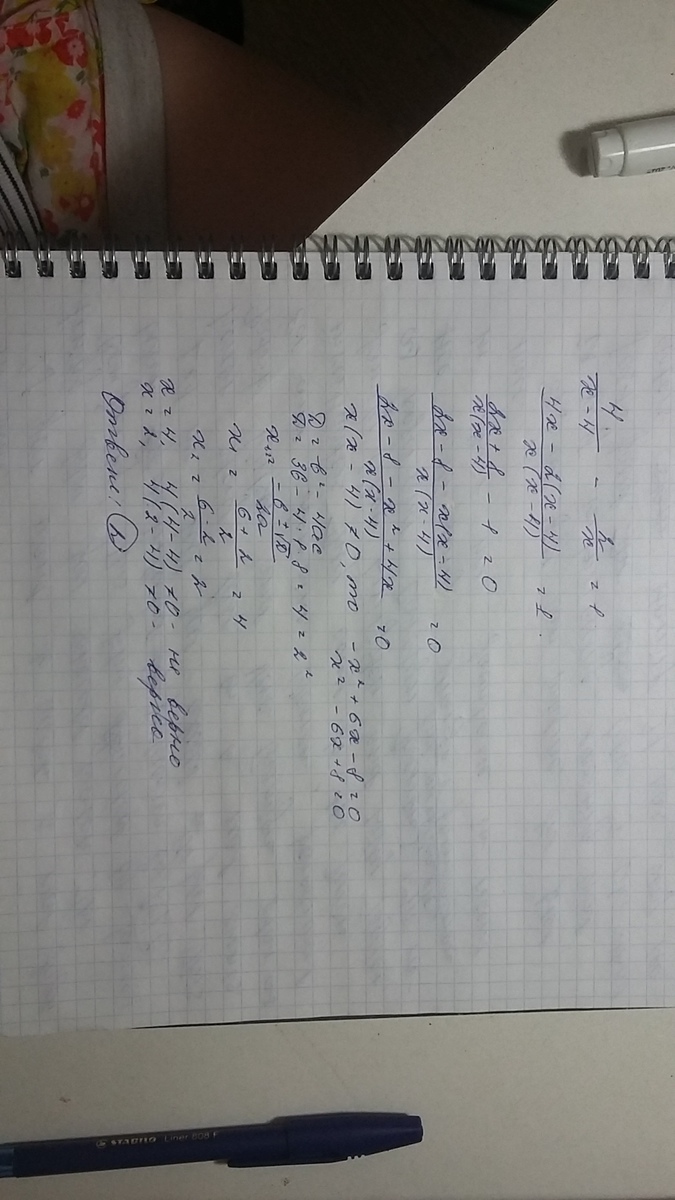 4/(x-4) - 2/x = 1
(4x - 2(x-4))/(x(x-4)) = 1.
(2x+8)/(x(x-4)) - 1 = 0
(2x - 8 - x(x-4))/(x(x-4)) = 0
(2x - 8 - x² + 4x)/(x(x-4)) = 0
x(x-4) ≠ 0, то -x² + 6x - 8 = 0
x² - 6x + 8 = 0
D = b² - 4ac
D = 36 - 4·8 = 4 = 2²
x₁,₂ = (-b ± √D)/2a
x₁ = (6+2)/2 = 4
x₂ = (6-2)/2 = 2
x = 4, 4(4-4) ≠ 0 - не верно
x = 2, 4(2-4) ≠ 0 - верно
Ответ: 2
STABILO Liner 808 F